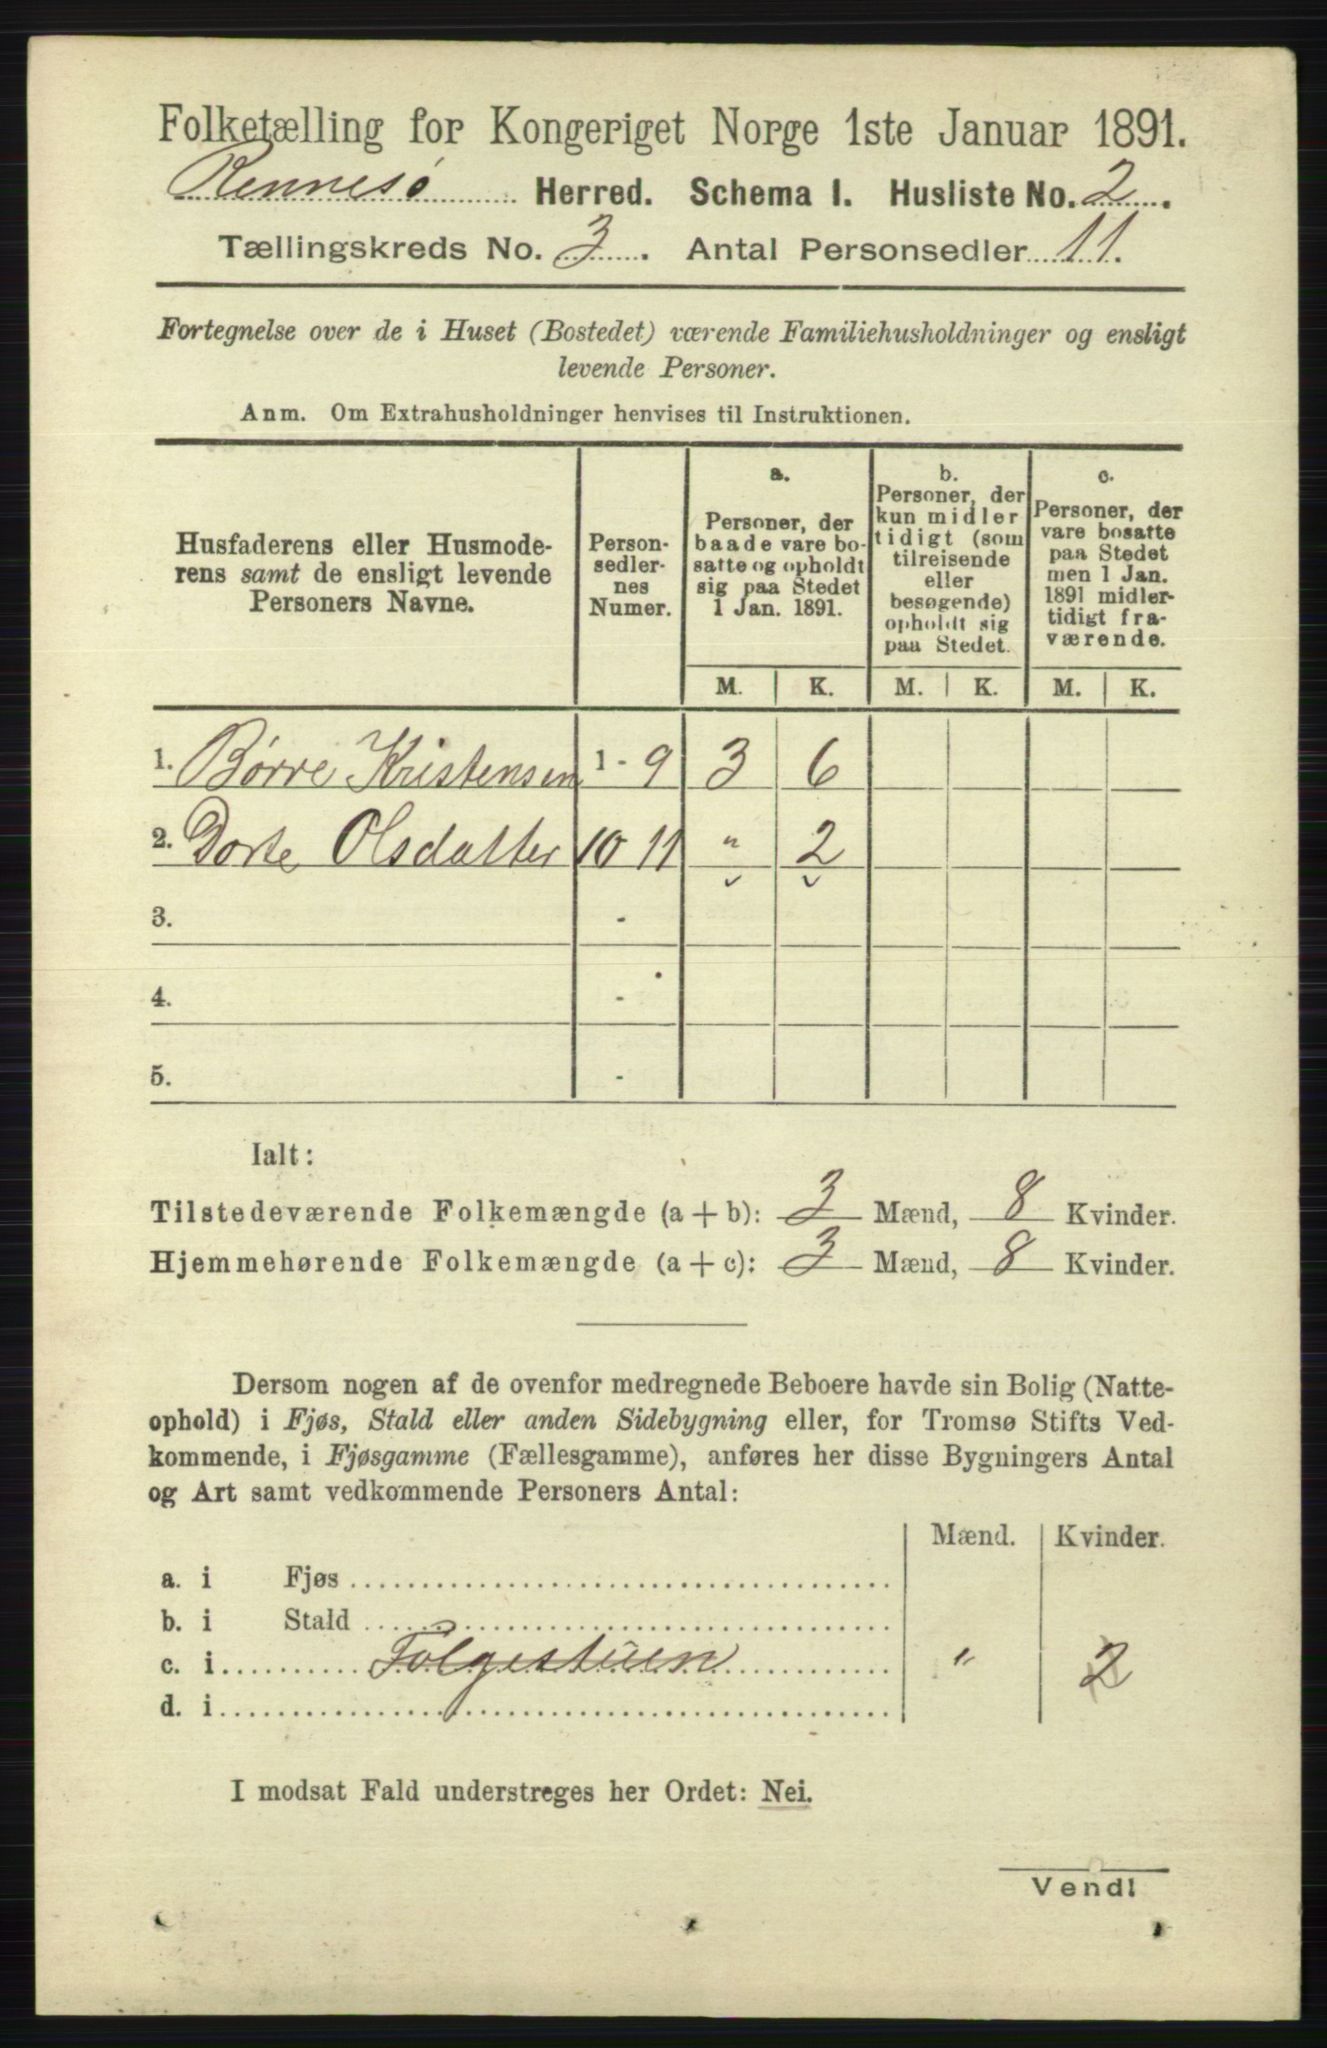 Folketælling for Kongeriget Norge 1ste Januar 1891.
Rennesø Herred. Schema I. Husliste No. 2.
Tællingskreds No. 3. Antal Personsedler 11.
Fortegnelse over de i Huset (Bostedet) værende Familiehusholdninger og ensligt
levende Personer.
Anm. Om Extrahusholdninger henvises til Instruktionen.
Husfaderens eller Husmode-
rens samt de ensligt levende
Personers Navne.
Person-
sedler-
nes
Numer.
a.
Personer, der
baade vare bo-
satte og opholdt
sig paa Stedet
1 Jan. 1891.
b.
Personer, der
kun midler
tidigt (som
tilreisende
eller
besøgende)
opholdt sig
paa Stedet.
c.
Personer, der
vare bosatte
paa Stedet
men 1 Jan.
1891 midler-
tidigt fra-
værende.
M. K. M. K. M. K.
1. Børre Kristensen 1 - 9 3 6
2. Dorte Olsdatter 10 11 " 2
3. -
4. -
5. -
Ialt:
Tilstedeværende Folkemængde (a + b): 3 Mænd, 8 Kvinder.
Hjemmehørende Folkemængde (a + c): 3 Mænd, 8 Kvinder.
Dersom nogen af de ovenfor medregnede Beboere havde sin Bolig (Natte-
ophold) i Fjøs, Stald eller anden Sidebygning eller, for Tromsø Stifts Ved-
kommende, i Fjøsgamme (Fællesgamme), anføres her disse Bygningers Antal
og Art samt vedkommende Personers Antal:
Mænd. Kvinder.
a. i Fjøs
b. i Stald
c. i Folgestuen " 2
d. i
I modsat Fald understreges her Ordet: Nei.
Vend!